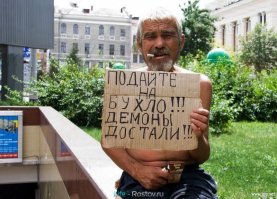 ПОДАЙТЕ
НА
БУХЛО!!!
ДЕМОНЫ
ДОСТАЛИ!!!
Rostov.ru